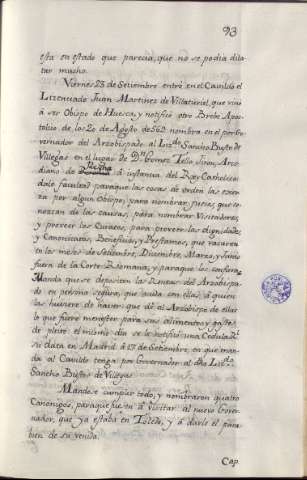 93
esta en estado que parecia, que no se podia dila
tar mucho.
Viernes 25 de Setiembre entró en el Cavildo el
Lizenciado Juan Martinez de Villaturiel, que vino
à ser Obispo de Huesca, y notificó otro Brebe Apos-
tolico de los 20 de Agosto de 562 nombra en el por Go
vernador del Arzobispado al Lizdo Sancho Busto de
Villegas en el lugar de Dn Gomez Tello Jiron, Arce
diano de à instancia del Rey Catholico:
dale facultad paraque las cosas de orden las exer
za por algun Obispo, y para nombrar jueces, que co
nozcan de las causas, para nombrar Visitadores,
y proveer los Curatos, para proveer las dignidades,
y Canonicatos, Beneficios, y Prestamos, que vacaren
en los meses de Setiembre, Diciembre, Marzo, y Junio
fuera de la Corte Romana, y paraque los confiera.
Manda que se depositen las Rentas del Arzobispa-
do en persona segura, que cuida con ellas, à quien
las huviere de hacer: que dé al Arzobispo de ellas
lo que fuere menester para sus alimentos, y gastos
de pleito: el mismo dia se le notificó una Cedula Rl
su data en Madrid à 17 de Setiembre, en que man-
da al Cavildo tenga por Governador al dho Lizdo
Sancho Busto de Villegas.
Mandose cumplir todo, y nombraron quatro
Canonigos, paraque fuesen à visitar al nuevo Gover
nador, que ya estaba en Toledo, y à darle el para
bien de su venida.
Cap.